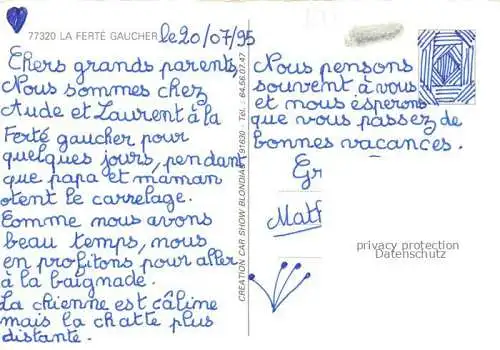 77320 LA FERTÉ GAUCHER le 20/07/95
Chers grands parents,
Nous sommes chez
Aude et Laurent à la
Ferté gaucher pour
quelques jours, pendant
que papa et maman
otent le carrelage.
Comme nous avons
beau temps, nous
en profitons pour aller
à la baignade.
La chienne est câline
mais la chatte plus
distante.
CREATION CAR SHOW BLONDIAS T91630 - Tél. : 64.56.07.47
Nous pensons
souvent à vous
et nous éspérons
que vous passez de
bonnes vacances.
Gr
Matt
privacy protection
Datenschutz